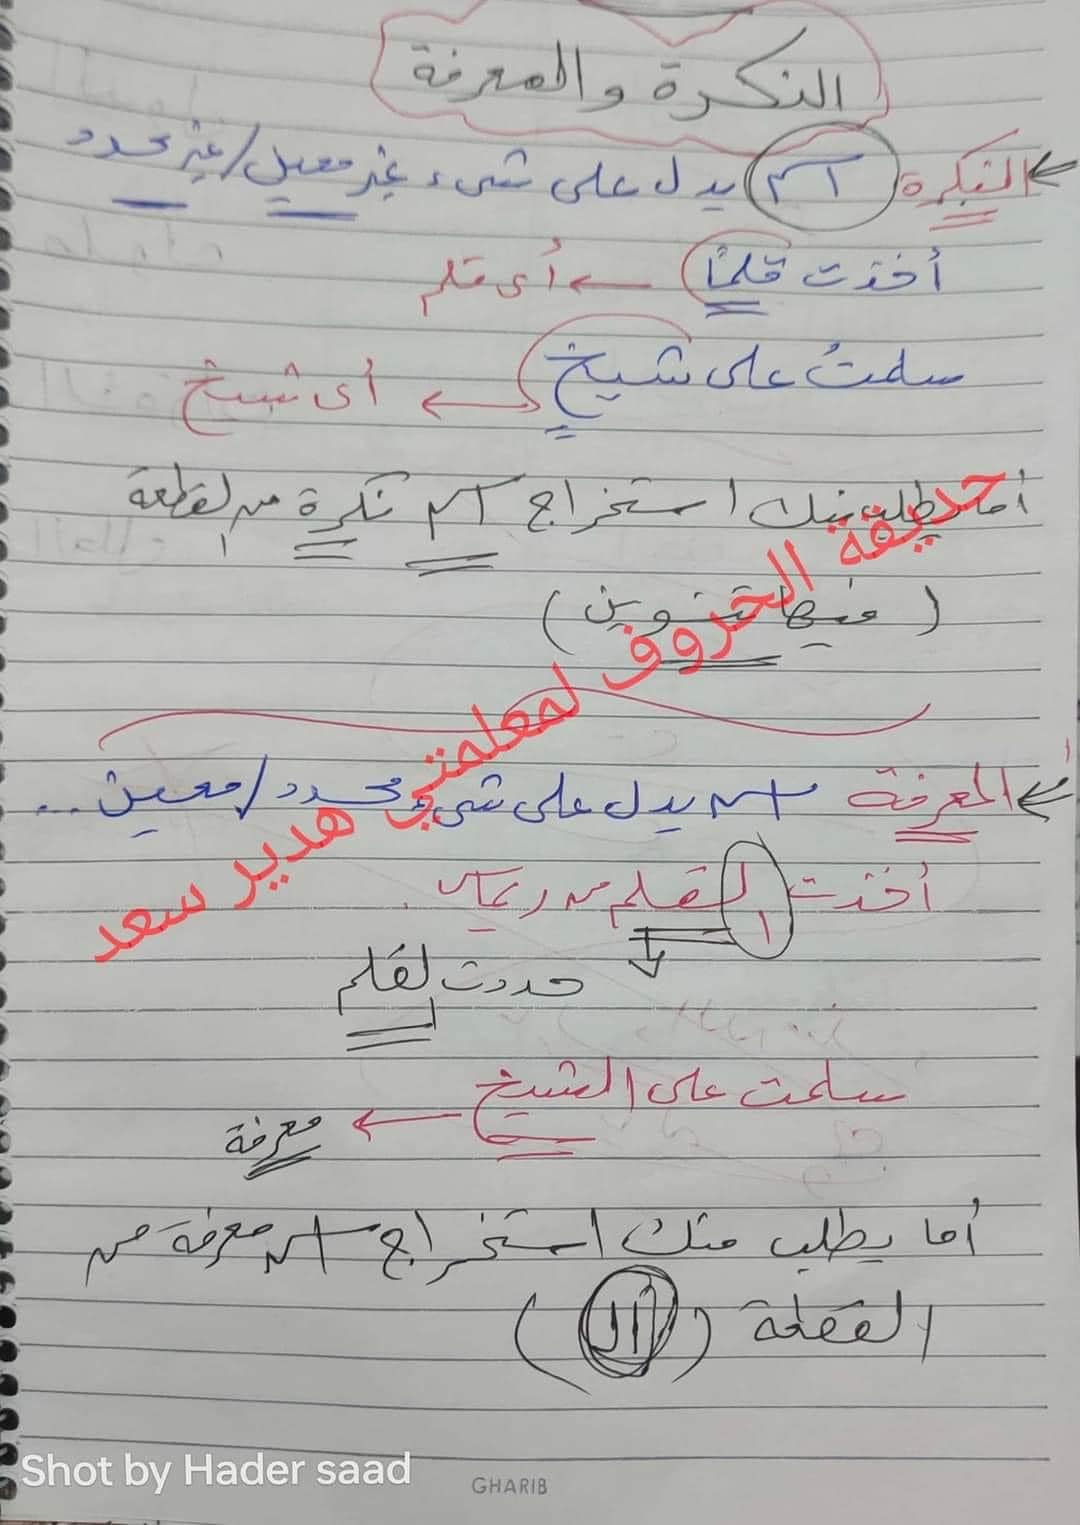 النكرة والمعرفة
النكرة اسم يدل على شيء غير معين/غير محدد
أخذت قلمًا ← أى قلم
سلمتُ على شيخٍ ← أى شيخ
أما يطلب منك استخراج اسم نكرة من القطعة
(فيها تنوين)
المعرفة اسم يدل على شيء محدد/معين ..
أخذت القلم من
حددت القلم
سلمت على الشيخ ← معرفة
أما يطلب منك استخراج اسم معرفة من
القطعة (ال)
حديقة الحروف لمعلمتي هدير سعد
Shot by Hader saad
GHARIB